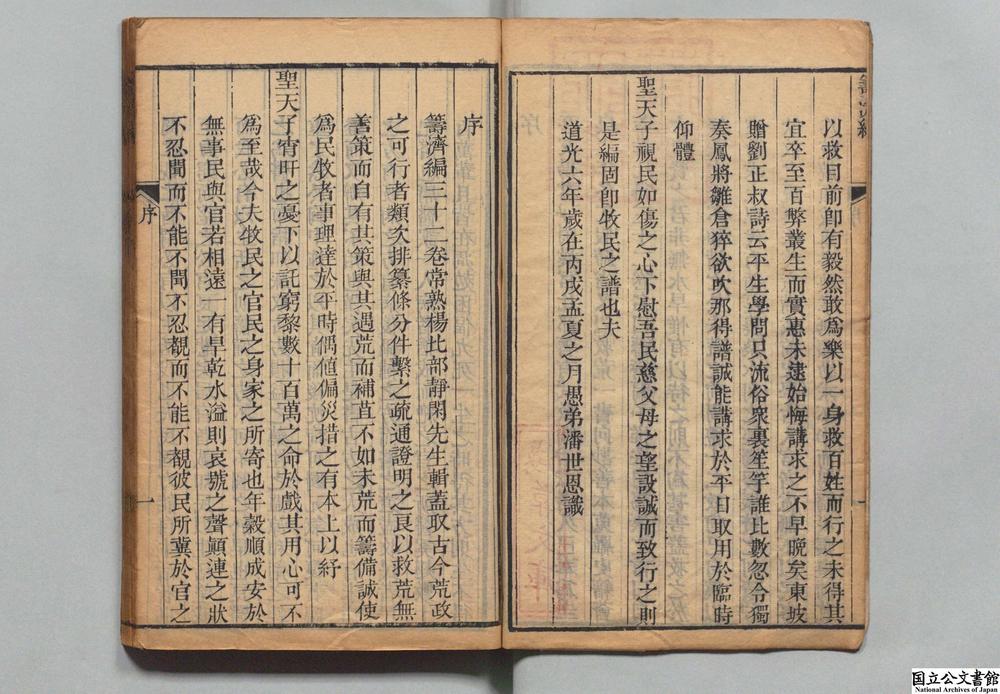 以救目前卽有毅然敢爲樂以一身救百姓而行之未得其
宜卒至百弊叢生而實惠未逮始悔講求之不早晚矣東坡
贈劉正叔詩云平生學問只流俗衆裏笙竽誰比數忽令獨
奏鳳將雛倉猝欲吹那得譜誠能講求於平日取用於臨時
仰體
聖天子視民如傷之心下慰吾民慈父母之望設誠而致行之則
是編固卽牧民之譜也夫
道光六年歲在丙戌孟夏之月愚弟潘世恩識
序
籌濟編三十二卷常熟楊比部靜閑先生輯蓋取古今荒政
之可行者類次排纂條分件繫之疏通證明之良以救荒無
善策而自有其策與其遇荒而補苴不如未荒而籌備誠使
爲民牧者事理達於平時偶値偏災措之有本上以紓
聖天子宵旰之憂下以託窮黎數十百萬之命於戲其用心可不
爲至哉今夫牧民之官民之身家之所寄也年穀順成安於
無事民與官若相遠一有旱乾水溢則哀號之聲顚連之狀
不忍聞而不能不聞不忍覩而不能不覩彼民所冀於官之
序
一
国立公文書館
National Archives of Japan